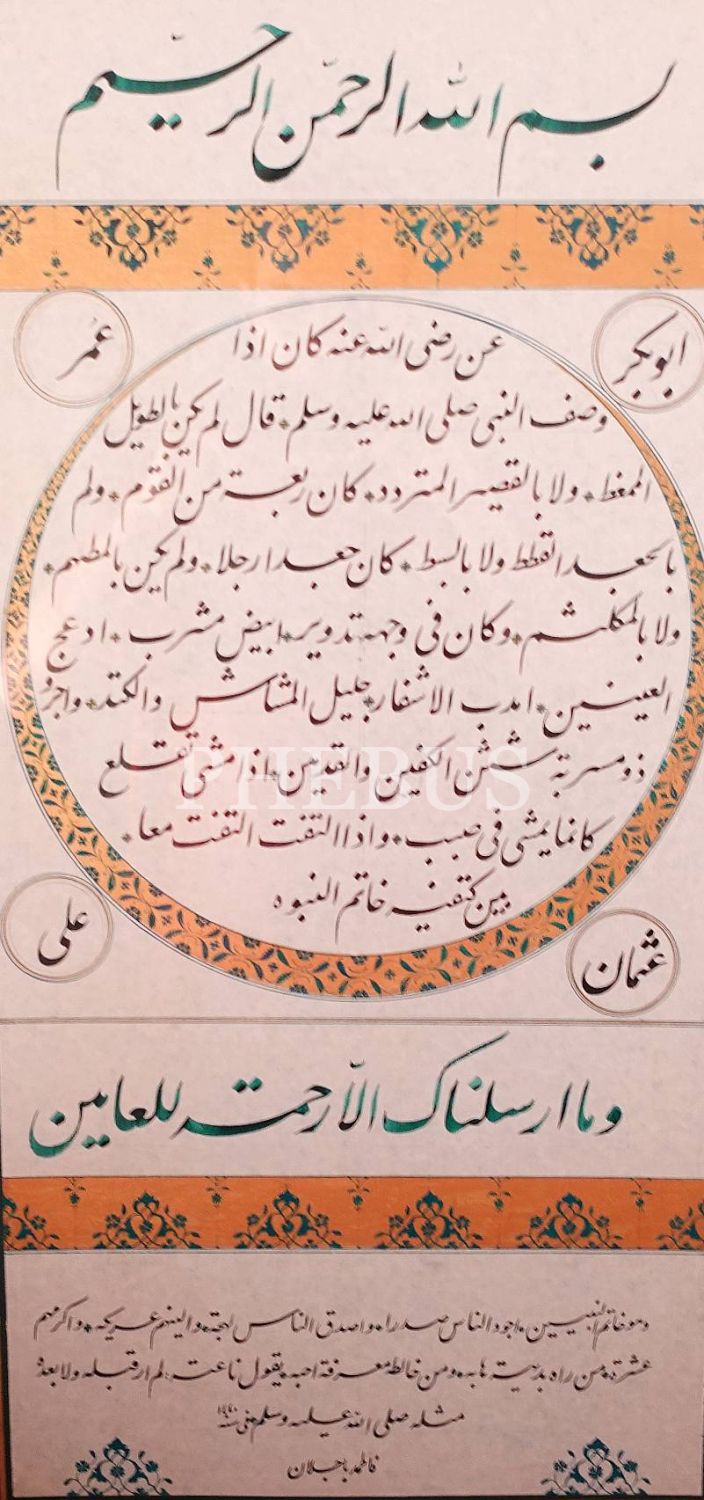 بسم الله الرحمن الرحيم
ابوبكر
عمر
عن رضى الله عنه كان اذا
وصف النبى صلى الله عليه وسلم قال لم يكن بالطويل
الممغط ولا بالقصير المتردد كان ربعة من القوم ولم
بالجعد القطط ولا بالسبط كان جعدا رجلا ولم يكن بالمطهم
ولا بالمكلثم وكان فى وجهه تدوير ابيض مشرب ادعج
العينين اهدب الاشفار جليل المشاش والكتد واجرد
ذو مسربة شثن الكفين والقدمين اذا مشى تقلع
كانما يمشى فى صبب واذا التفت التفت معا
بين كتفيه خاتم النبوه
PHEBUS
عثمان
على
وما ارسلناك الّا رحمة للعالمين
وهو خاتم النبيين اجود الناس صدرا واصدق الناس لهجة والينهم عريكه واكرمهم
عشرة من راه بديهة هابه ومن خالطه معرفة احبه يقول ناعته لم ار قبله ولا بعده
مثله صلى الله عليه وسلم
فاطمه باجلان